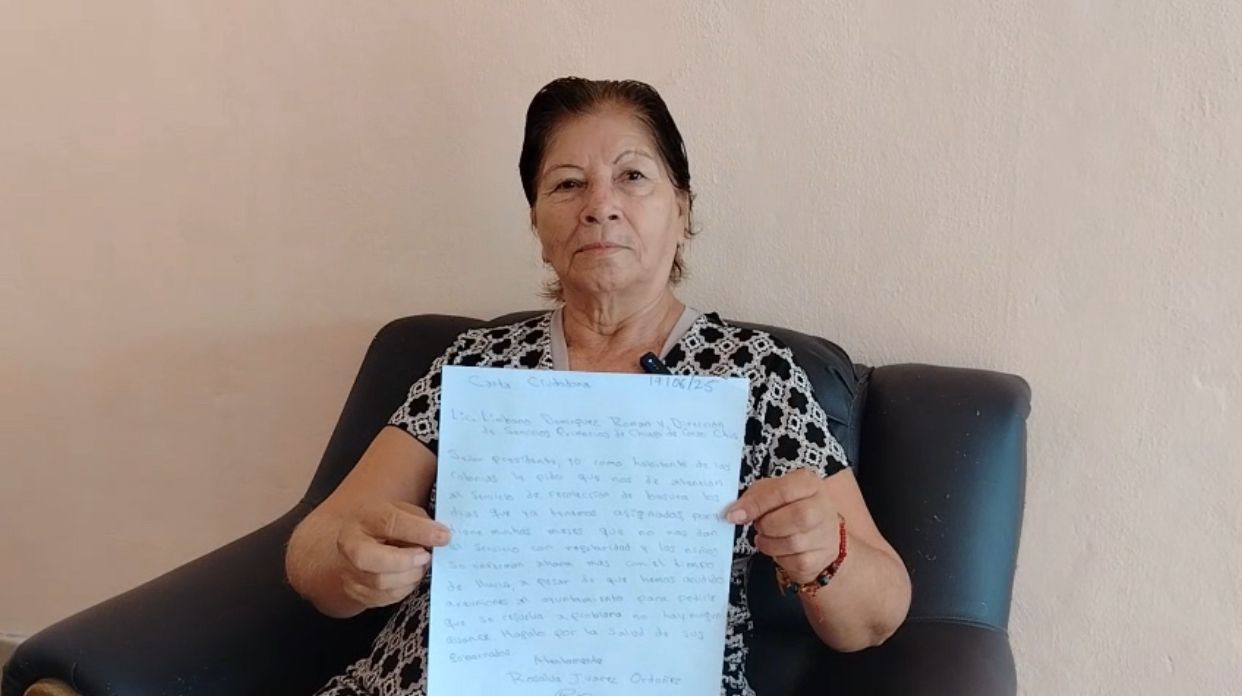 Carta Ciudadana 19/06/25
Lic. Limbano Dominguez Roman y Dirección
de Servicios Primarios de Chiapa de Corzo Chis
Señor presidente, yo como habitante de las
colonias le pido que nos de atención
al servicio de recolección de basura los
días que ya tenemos asignados, porque
tiene muchos meses que no nos dan
el servicio con regularidad y los niños
se enferman ahora mas con el tiempo
de lluvia, a pesar de que hemos acudido
a reuniones al ayuntamiento para pedirle
que se resuelva a problema no hay ningun
avance Hagalo por la salud de sus
gobernados.
Atentamente
Rosalba Juarez Ordoñez